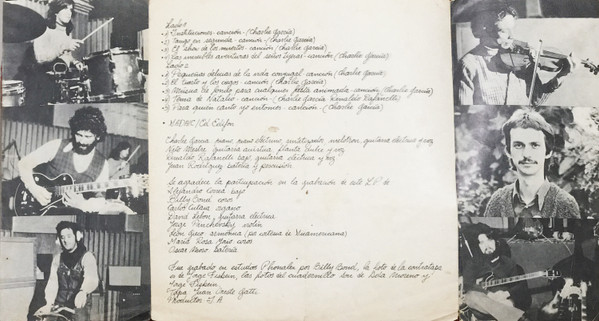 Lado 1
1) Instituciones - canción - (Charlie García)
2) Tango en segunda - canción - (Charlie García)
3) El show de los muertos - canción (Charlie García)
4) Las increíbles aventuras del señor tijeras - canción (Charlie García)
Lado 2
1) Pequeñas delicias de la vida conyugal - canción (Charlie García)
2) El tuerto y los ciegos - canción (Charlie García)
3) Música de fondo para cualquier fiesta animada - canción (Charlie García)
4) Tema de Natalio - canción - (Charlie García Rinaldo Rafanelli)
5) Para quien canto yo entonces - canción (Charlie García)
Charlie García piano, piano eléctrico, sintetizador, melotron, guitarra eléctrica y voz
Nito Mestre guitarra acústica, flauta dulce y voz
Rinaldo Rafanelli bajo, guitarra eléctrica y voz
Juan Rodríguez batería y percusión
Se agradece la participación en la grabación de este L.P. de
Alejandro Correa bajo
Billy Bond coros
Carlos Cutaia órgano
David Lebon guitarra eléctrica
Jorge Pinchevsky violín
León Gieco armónica (por cortesía de
María Rosa Yorio coros
Oscar Moro batería
Fue grabado en estudios Phonalex por Billy Bond, la foto de la contratapa
es de Jorge Fisbein, las fotos del cuadernillo son de Lola Moreno y
Jorge Fisbein
Tapa Juan Oreste Gatti